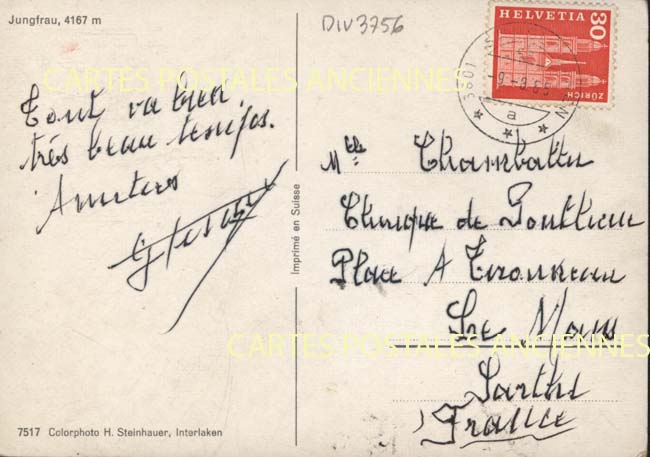 Jungfrau, 4167 m
DIV3756
HELVETIA
30
ZÜRICH
CARTES POSTALES ANCIENNES
Tout va bien,
très beau temps.
Amitiés
Mlle
Clinique de
Place A
Le Mans
Sarthe
France
Imprimé en Suisse
CARTES POSTALES ANCIENNES
7517 Colorphoto H. Steinhauer, Interlaken